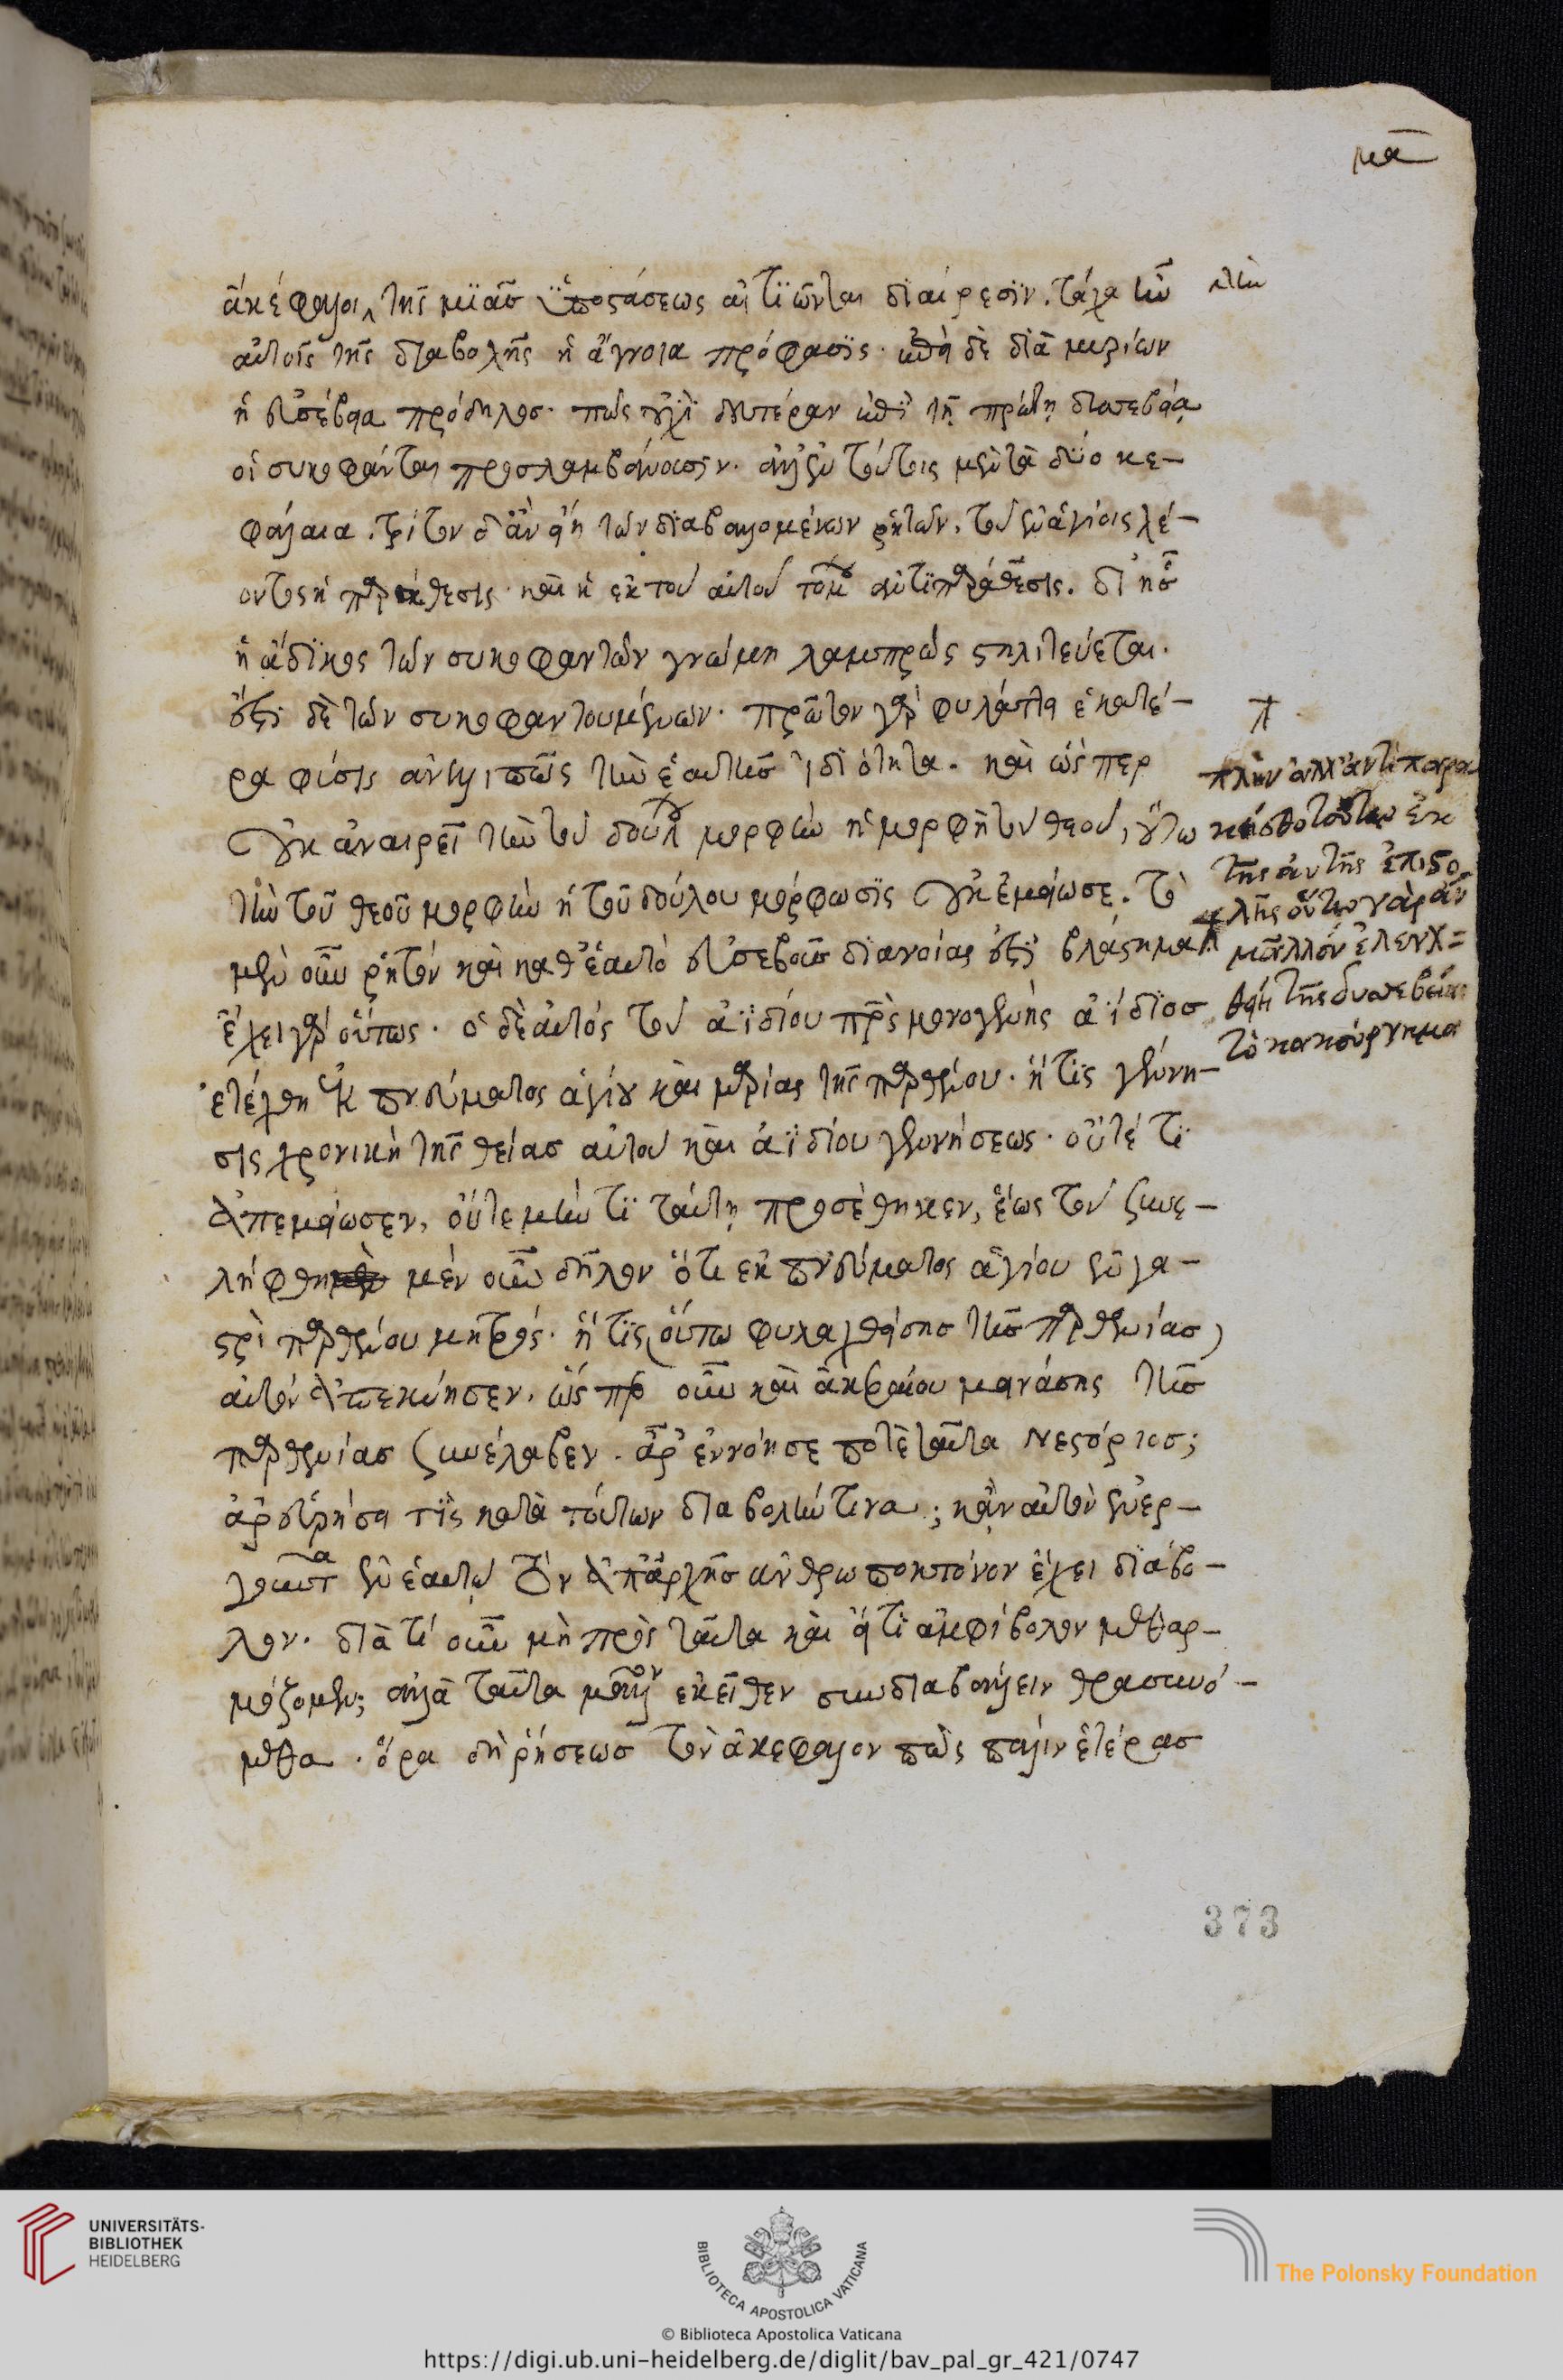 μα
ἀκέφαλοι, τῆς μϊᾶσ ὑποστάσεως αἰτϊῶνται δϊαίρεσϊν. τάχα ἦν
αὐτοῖς τῆς διαβολῆς ἡ ἄγνοια πρόφασϊς. ἐπεὶ δὲ διὰ μυρίων
ἡ εὐσέβεια πρόδηλοσ. πῶς οὐχὶ δευτέραν ἐπὶ τῇ πρώτῃ δυσσεβείᾳ
οἱ συκοφάνται προσλαμβάνουσϊν. ἀλλ' ἐν τούτοις μὲν τὰ δύο κε-
φάλαια. τρίτον δ' ἂν εἴη τῶν δϊαβαλομένων ῥητῶν. τοῦ ἐν ἁγίοις λέ-
οντος ἡ παράθεσις. καὶ ἡ ἐκ τοῦ αὐτοῦ τόμου ἀντϊπαράθεσις. δι' ἧσ
ἡ ἄδϊκος τῶν συκοφαντῶν γνώμη λαμπρῶς στηλιτεύεται.
ἔστι δὲ τῶν συκοφαντουμένων. πρῶτον γὰρ φυλάττει ἑκατέ-
ρα φύσις ἀνελλιπῶς τὴν ἑαυτῆσ ἰδϊότητα. καὶ ὥσπερ
οὐκ ἀναιρεῖ τὴν τοῦ δούλου μορφὴν ἡ μορφὴ τοῦ θεοῦ, οὕτω
τὴν τοῦ θεοῦ μορφὴν ἡ τοῦ δούλου μόρφωσϊς οὐκ ἐμείωσε. τὸ
μὲν οὖν ῥητὸν καὶ καθ' ἑαυτὸ εὐσεβοῦσ δϊανοίας ἐστὶ βλάστημα
ἔχει γὰρ οὕτως. ὁ δὲ αὐτός τοῦ ἀϊδίου πατρὸς μονογενὴς ἀΐδϊοσ
ἐτέχθη ἐκ πνεύματος ἁγίου καὶ μαρίας τῆς παρθένου. ἥτις γέννη-
σις χρονικὴ τῆς θείασ αὐτοῦ καὶ ἀϊδίου γεννήσεως. οὔτέ τι
ἀπεμείωσεν, οὔτε μὴν τϊ ταύτῃ προσέθηκεν, ἕως τοῦ συνε-
λήφθη μὲν οὖν δῆλον ὅτι ἐκ πνεύματος ἁγίου ἐν γα-
στρὶ παρθένου μητρός. ἥτϊς οὕτω φυλαχθείσησ τῆσ παρθενίασ
αὐτὸν ἀπεκύησεν, ὥσπερ οὖν καὶ ἀκεραίου μεινάσης τῆσ
παρθενίασ συνέλαβεν. ἆρ' ἐννόησε ποτὲ ταῦτα νεστόριοσ;
ἆρ' εὑρήσει τϊς κατὰ τούτων διαβολὴν τινα; κἂν αὐτὸν ἐνερ-
γοῦντα ἐν ἑαυτῷ τὸν ἀπ' ἀρχῆσ ἀνθρωποκτόνον ἔχει δϊάβο-
λον. διὰ τί οὖν μὴ πρὸς ταῦτα καὶ εἴ τϊ ἀμφίβολον μεθαρ-
μόζομεν; ἀλλὰ ταῦτα μᾶλλον ἐκεῖθεν συνδιαβάλλειν θρασυνό-
μεθα. ὅρα δὴ ῥήσεωσ τὸν ἀκέφαλον πῶς πάλιν ἑτέρασ
πλὴν ἀλλ' ἀντιπαρα
κείσθω τούτῳ ἐκ
τῆς αὐτῆς ἐπιστο-
λῆς οὕτω γὰρ ἂν
μᾶλλον ἐλεγχ=
θείη τῆς δυσσεβείας
τὸ κακούργημα
373
UNIVERSITÄTS-
BIBLIOTHEK
HEIDELBERG
BIBLIOTECA APOSTOLICA VATICANA
The Polonsky Foundation
© Biblioteca Apostolica Vaticana
https://digi.ub.uni-heidelberg.de/diglit/bav_pal_gr_421/0747